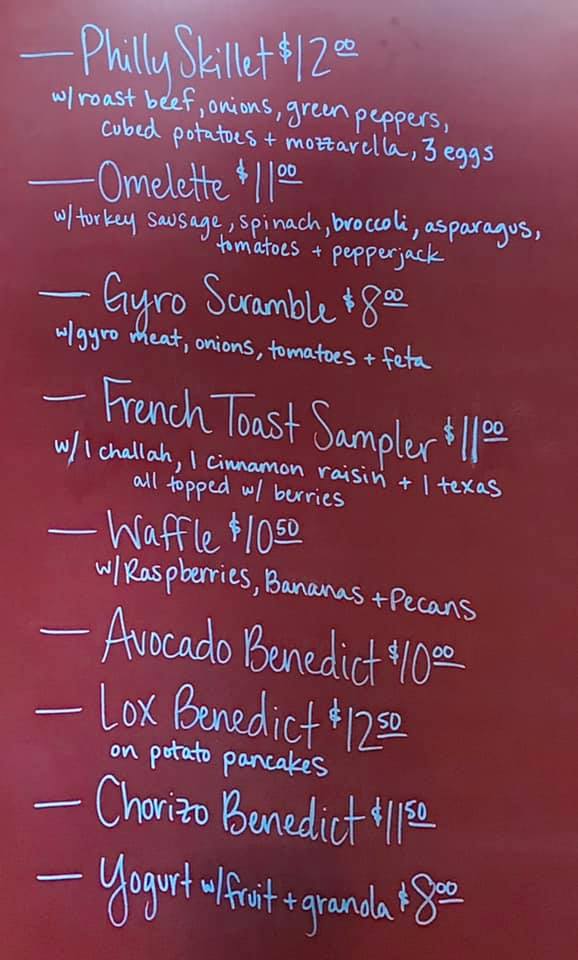 — Philly Skillet $12.00
w/roast beef, onions, green peppers,
cubed potatoes + mozzarella, 3 eggs
— Omelette $11.00
w/turkey sausage, spinach, broccoli, asparagus,
tomatoes + pepperjack
— Gyro Scramble $8.00
w/gyro meat, onions, tomatoes + feta
— French Toast Sampler $11.00
w/1 challah, 1 cinnamon raisin + 1 texas
all topped w/ berries
— Waffle $10.50
w/Raspberries, Bananas + Pecans
— Avocado Benedict $10.00
— Lox Benedict $12.50
on potato pancakes
— Chorizo Benedict $11.50
— Yogurt w/fruit + granola $8.00